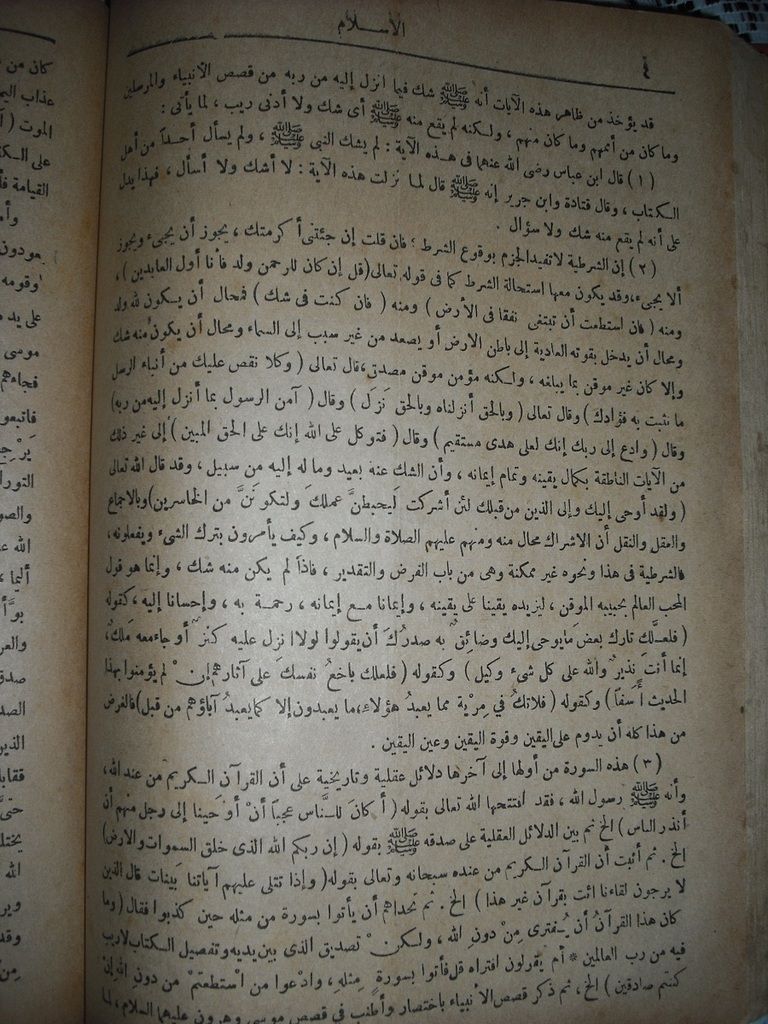 الإســـلام
٤
قد يؤخذ من ظاهر هذه الآيات أنه ﷺ شك فيما انزل إليه من ربه من قصص الأنبياء والمرسلين
وما كان من أممهم وما كان منهم ، ولكنه لم يقع منه ﷺ أى شك ولا أدنى ريب ، لما يأتى :
( ١ ) قال ابن عباس رضى الله عنهما فى هذه الآية : لم يشك النبى ﷺ ، ولم يسأل أحداً من أهل
الكتاب ، وقال قتادة وابن جرير إنه ﷺ قال لما نزلت هذه الآية : لا أشك ولا أسأل ، فهذا يدل
على أنه لم يقع منه شك ولا سؤال .
( ٢ ) إن الشرطية لا تفيد الجزم بوقوع الشرط ؛ فان قلت إن جئتنى أكرمتك ، يجوز أن يجىء ويجوز
ألا يجىء ، وقد يكون معها استحالة الشرط كما فى قوله تعالى (قل إن كان للرحمن ولد فأنا أول العابدين ) ،
ومنه ( فان استطعت أن تبتغى نفقا فى الأرض ) ومنه ( فان كنت فى شك ) فمحال أن يكون لله ولد
ومحال أن يدخل بقوته العادية إلى باطن الارض أو يصعد من غير سبب إلى السماء ومحال أن يكون منه شك
وإلا كان غير موقن بما يبلغه ، ولكنه مؤمن موقن مصدق ، قال تعالى ( وكلا نقص عليك من أنباء الرسل
ما نثبت به فؤادك ) وقال تعالى ( وبالحق أنزلناه وبالحق نَزَل ) وقال ( آمن الرسول بما أنزل إليه من ربه)
وقال ( وادع إلى ربك إنك لعلى هدى مستقيم ) وقال ( فتوكل على الله إنك على الحق المبين ) إلى غير ذلك
من الآيات الناطقة بكمال يقينه وتمام إيمانه ، وأن الشك عنه بعيد وما له إليه من سبيل ، وقد قال الله تعالى
( ولقد أوحى إليك وإلى الذين من قبلك لئن أشركت لَيحبطنَّ عملك ولتكونَنَّ من الخاسرين) وبالاجماع
والعقل والنقل أن الاشراك محال منه ومنهم عليهم الصلاة والسلام ، وكيف يأمرون بترك الشىء ويفعلونه ،
فالشرطية فى هذا ونحوه غير ممكنة وهى من باب الفرض والتقدير ، فاذا لم يكن منه شك ، وإنما هو قول
المحب العالم بحبيبه الموقن ، ليزيده يقينا على يقينه ، وإيمانا مع إيمانه ، رحمة به ، وإحسانا إليه ، كقوله
( فلعلَّك تارك بعضَ ما يوحى إليك وضائقٌ به صدرُكَ أن يقولوا لولا انزل عليه كنزٌ أو جاء معه مَلَكٌ ،
إنما أنتَ نذيرٌ والله على كل شىء وكيل ) وكقوله ( فلعلك باخعٌ نفسكَ على آثارهم إن لم يؤمنوا بهذا
الحديث أسفاً ) وكقوله ( فلا تكُ فى مِرْية مما يعبدُ هؤلاء ، ما يعبدون إلا كما يعبدُ آباؤهم من قبل) فالغرض
من هذا كله أن يدوم على اليقين وقوة اليقين وعين اليقين .
( ٣ ) هذه السورة من أولها إلى آخرها دلائل عقلية وتاريخية على أن القرآن الكريم من عند الله ،
وأنه ﷺ رسول الله ، فقد افتتحها الله تعالى بقوله ( أكانَ للنَّاس عجباً أنْ أوحَينا إلى رجل منهم أن
أنذر الناس ) الخ ثم بين الدلائل العقلية على صدقه ﷺ بقوله ( إن ربكم الله الذى خلق السموات والارض)
الخ . ثم أثبت أن القرآن الكريم من عنده سبحانه وتعالى بقوله ( وإذا تتلى عليهم آياتنا بَينات قال الذين
لا يرجون لقاءنا ائت بقرآن غير هذا ) الخ . ثم تحداهم أن يأتوا بسورة من مثله حين كذبوا فقال ( وما
كان هذا القرآنُ أن يُفترى مِنْ دون الله ، ولكنْ تصديق الذى بين يديه وتفصيل الكتاب لا ريب
فيه من رب العالمين * أم يقولون افتراه قل فأتوا بسورةٍ مِثله ، وادعوا من استطعتمْ من دون الله إن
كنتم صادقين ) الخ ، ثم ذكر قصص الأنبياء باختصار وأطنب فى قصص موسى وهرون عليهما السلام ، لما